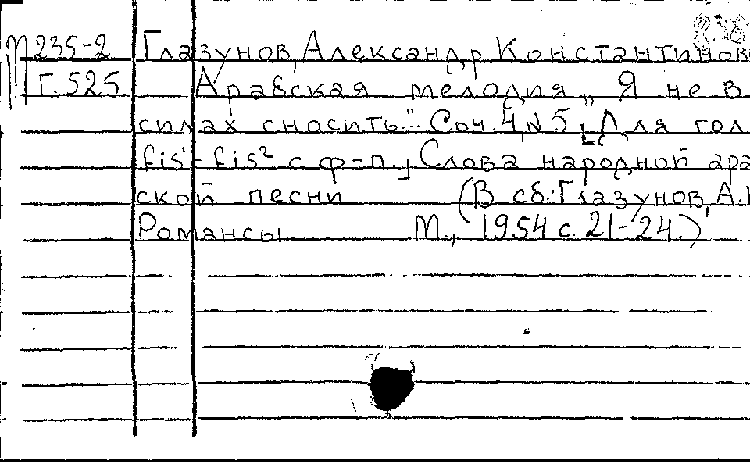 М 235-2 Глазунов, Александр Константинов
Г. 525 Арабская мелодия „Я не в
силах сносить". Соч. 4 №5. [Для гол.
fis¹-fis² с ф-п.] Слова народной ара
ской песни (В сб.: Глазунов, А.К
Романсы М., 1954 с. 21-24.)